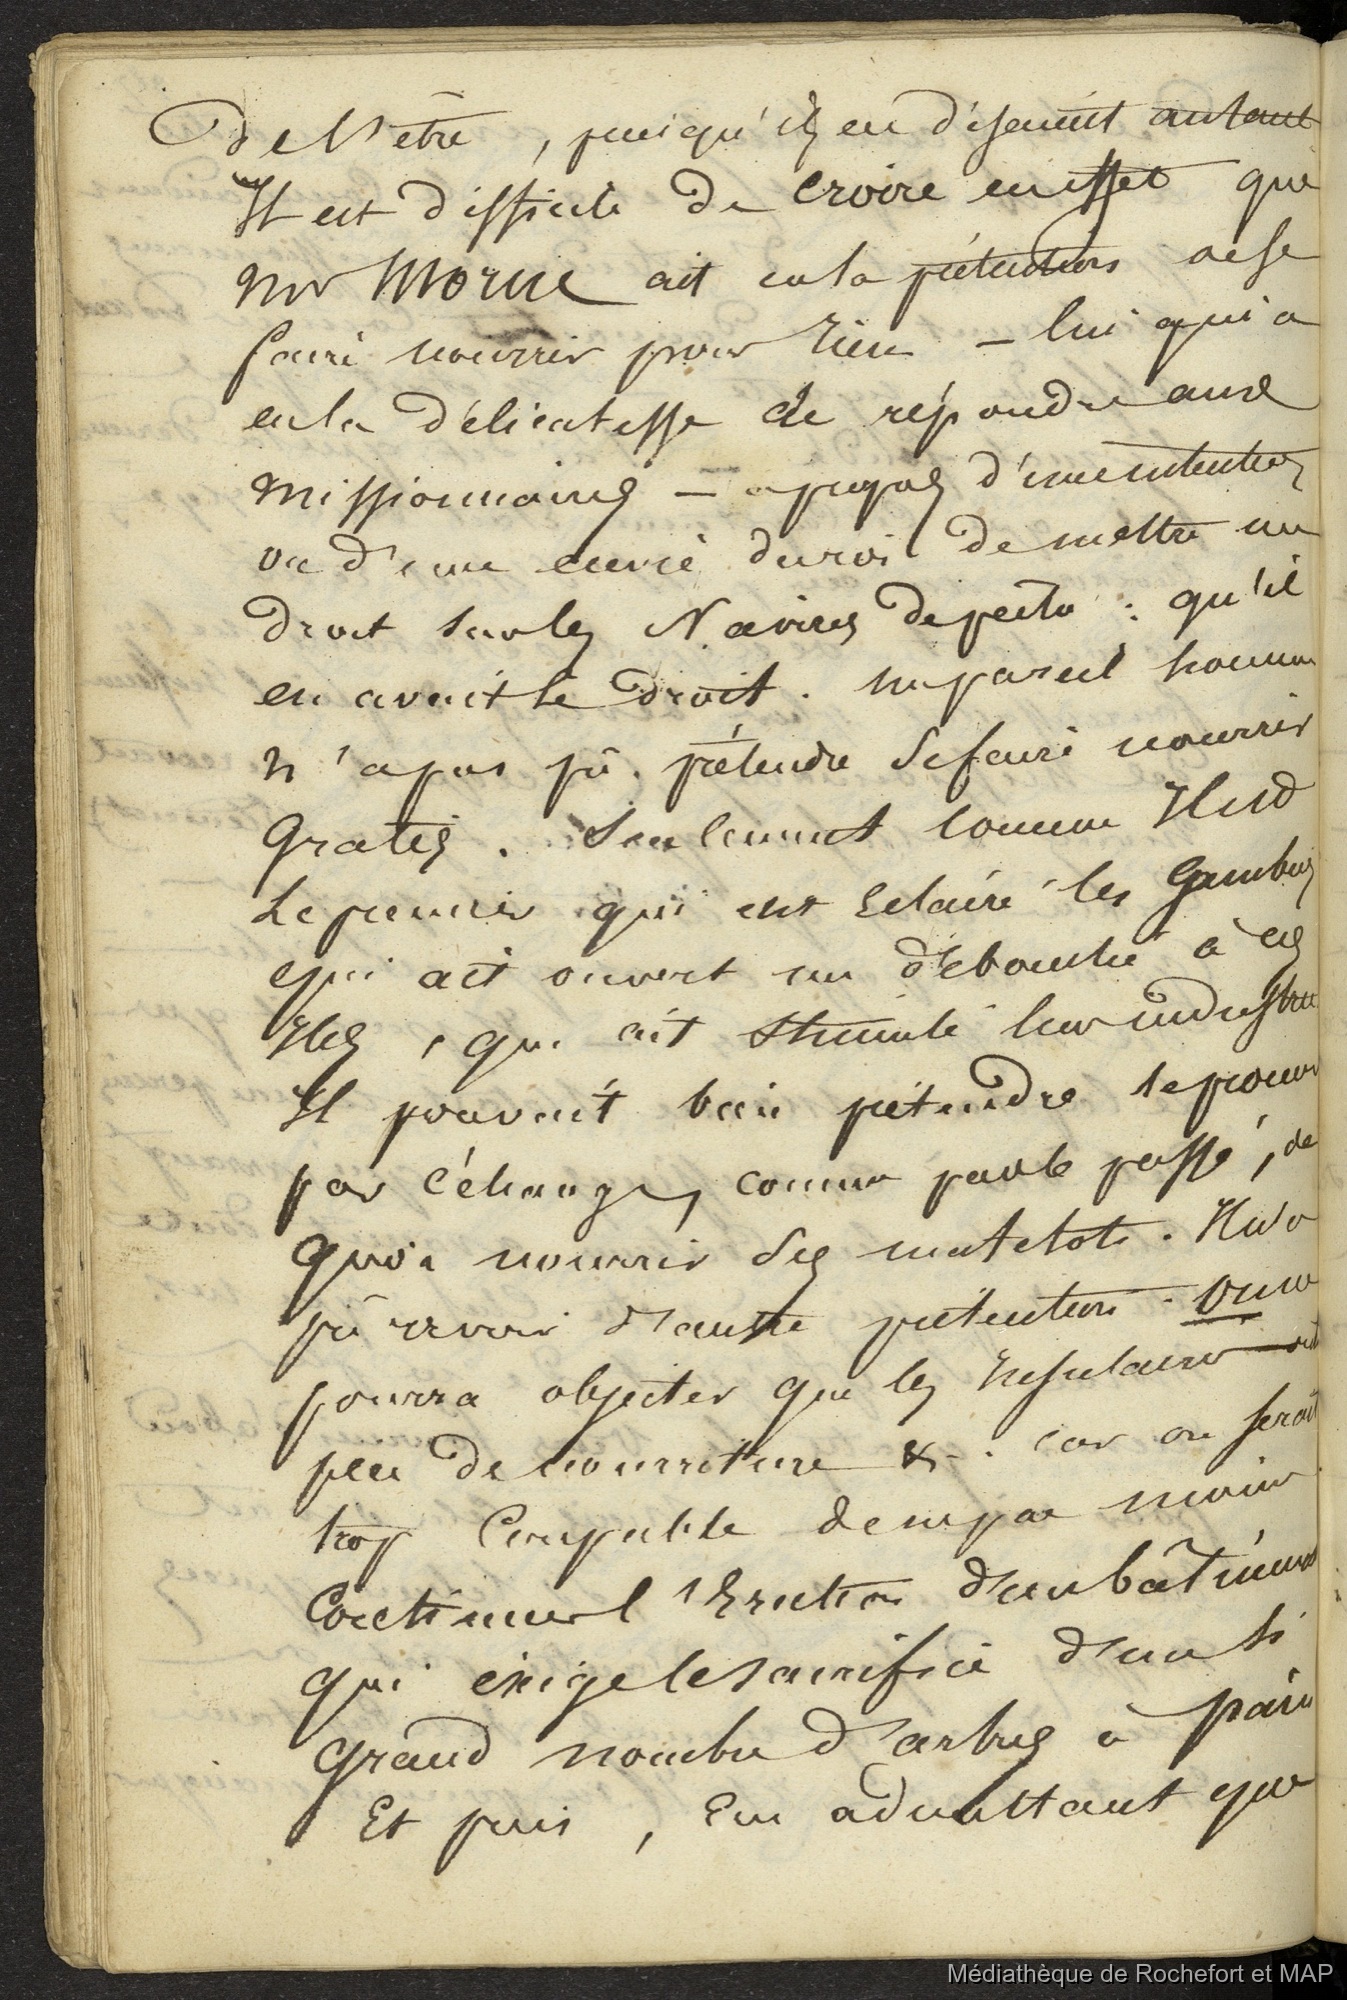 de l'être, puisqu'ils en disaient autant
Il est difficile de croire en effet que
Mr Morue ait eu la prétention de se
faire nourrir pour rien — lui qui a
eu la délicatesse de répondre aux
missionnaires — a propos d'une intention
ou d'une envie du roi de mettre un
droit sur les Navires de pecho : qu'il
en avait le droit. un pareil homme
n'a pas pû prétendre se faire nourrir
Gratis. Seulement comme Il est
Le premier qui est Eclairé les Gambiers
qui ait ouvert un débouché à ces
Iles, qui ait stimulé leur industrie
Il pouvait bien prétendre se procurer
par l'échange, comme par le passé, de
quoi nourrir ses matelots. Il n'a
pû avoir d'autre prétention. on ne
pourra objecter que les Insulaires ont
peu de nourriture &. car on serait
trop Coupable de ne pas moins
Continuer l'Erection d'un bâtiment
qui exige le sacrifice d'un si
grand nombre d'arbres à pain
Et puis, En admettant que
Médiathèque de Rochefort et MAP